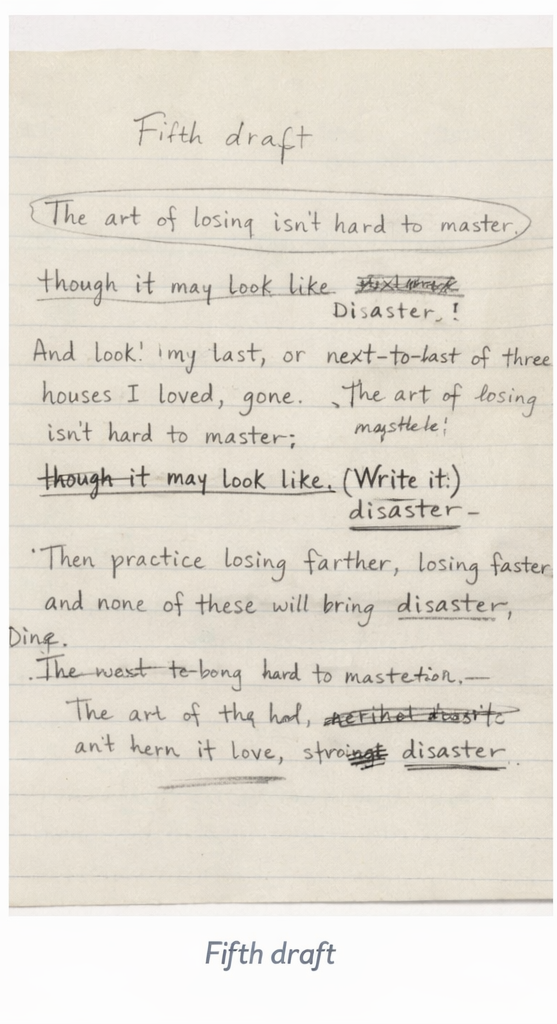 Fifth draft
The art of losing isn't hard to master.
though it may look like
Disaster, !
And look! my last, or next-to-last of three
houses I loved, gone. The art of losing
isn't hard to master;
though it may look like. (Write it:)
disaster-
Then practice losing farther, losing faster
and none of these will bring disaster,
hard to
The art of
it love, disaster
Fifth draft